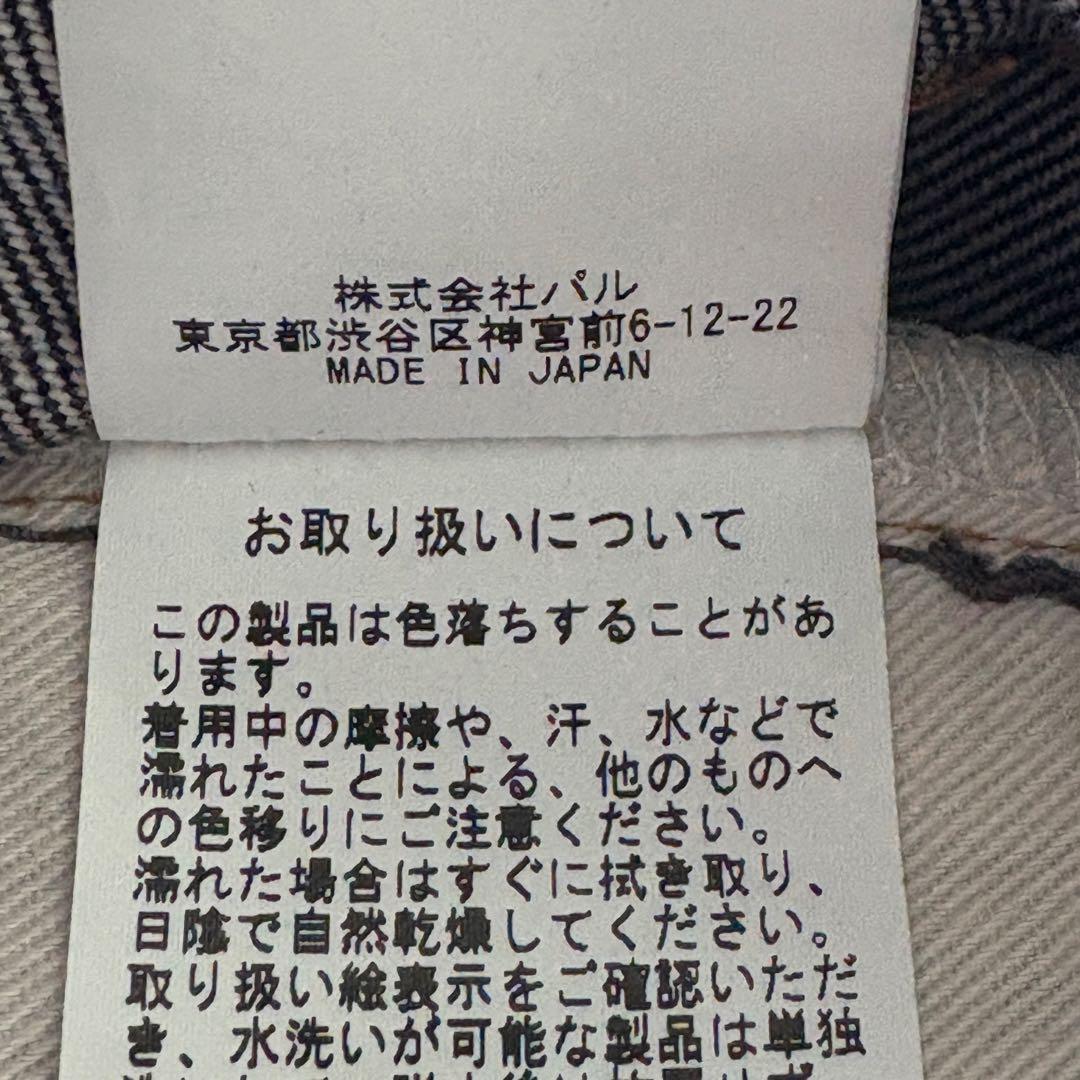 株式会社パル
東京都渋谷区神宮前6-12-22
MADE IN JAPAN
お取り扱いについて
この製品は色落ちすることがあ
ります。
着用中の摩擦や、汗、水などで
濡れたことによる、他のものへ
の色移りにご注意ください。
濡れた場合はすぐに拭き取り、
日陰で自然乾燥してください。
取り扱い絵表示をご確認いただ
き、水洗いが可能な製品は単独